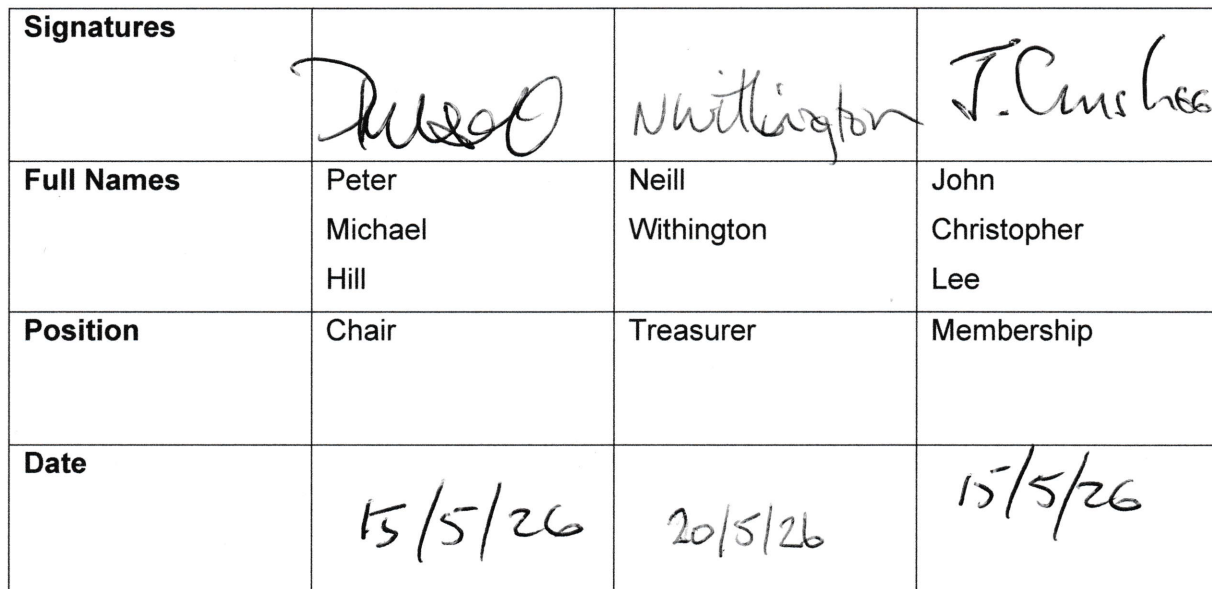 Signatures
NWithington J. Chris Lee
Full Names Peter Neill John
Michael Withington Christopher
Hill Lee
Position Chair Treasurer Membership
Date
15/5/26 20/5/26 15/5/26